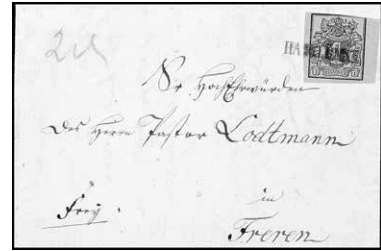 Sr HochEhrwürden
des Herrn Pastor Lodtmann
in
Frey.
Freren